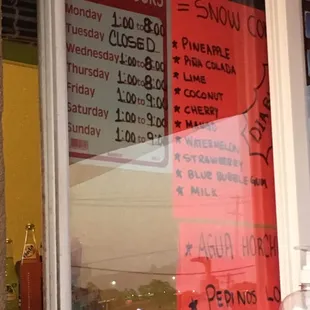 HOURS
Monday 1:00 to 8:00
Tuesday CLOSED
Wednesday 1:00 to 8:00
Thursday 1:00 to 8:00
Friday 1:00 to 9:00
Saturday 1:00 to 9:00
Sunday 1:00 to 9:00
= SNOW CO
* PINEAPPLE
* PIÑA COLADA
* LIME
* COCONUT
* CHERRY
* MANGO
* WATERMELON
* STRAWBERRY
* BLUE BUBBLEGUM
* MILK
AGUA HORCH
PEPINOS LO